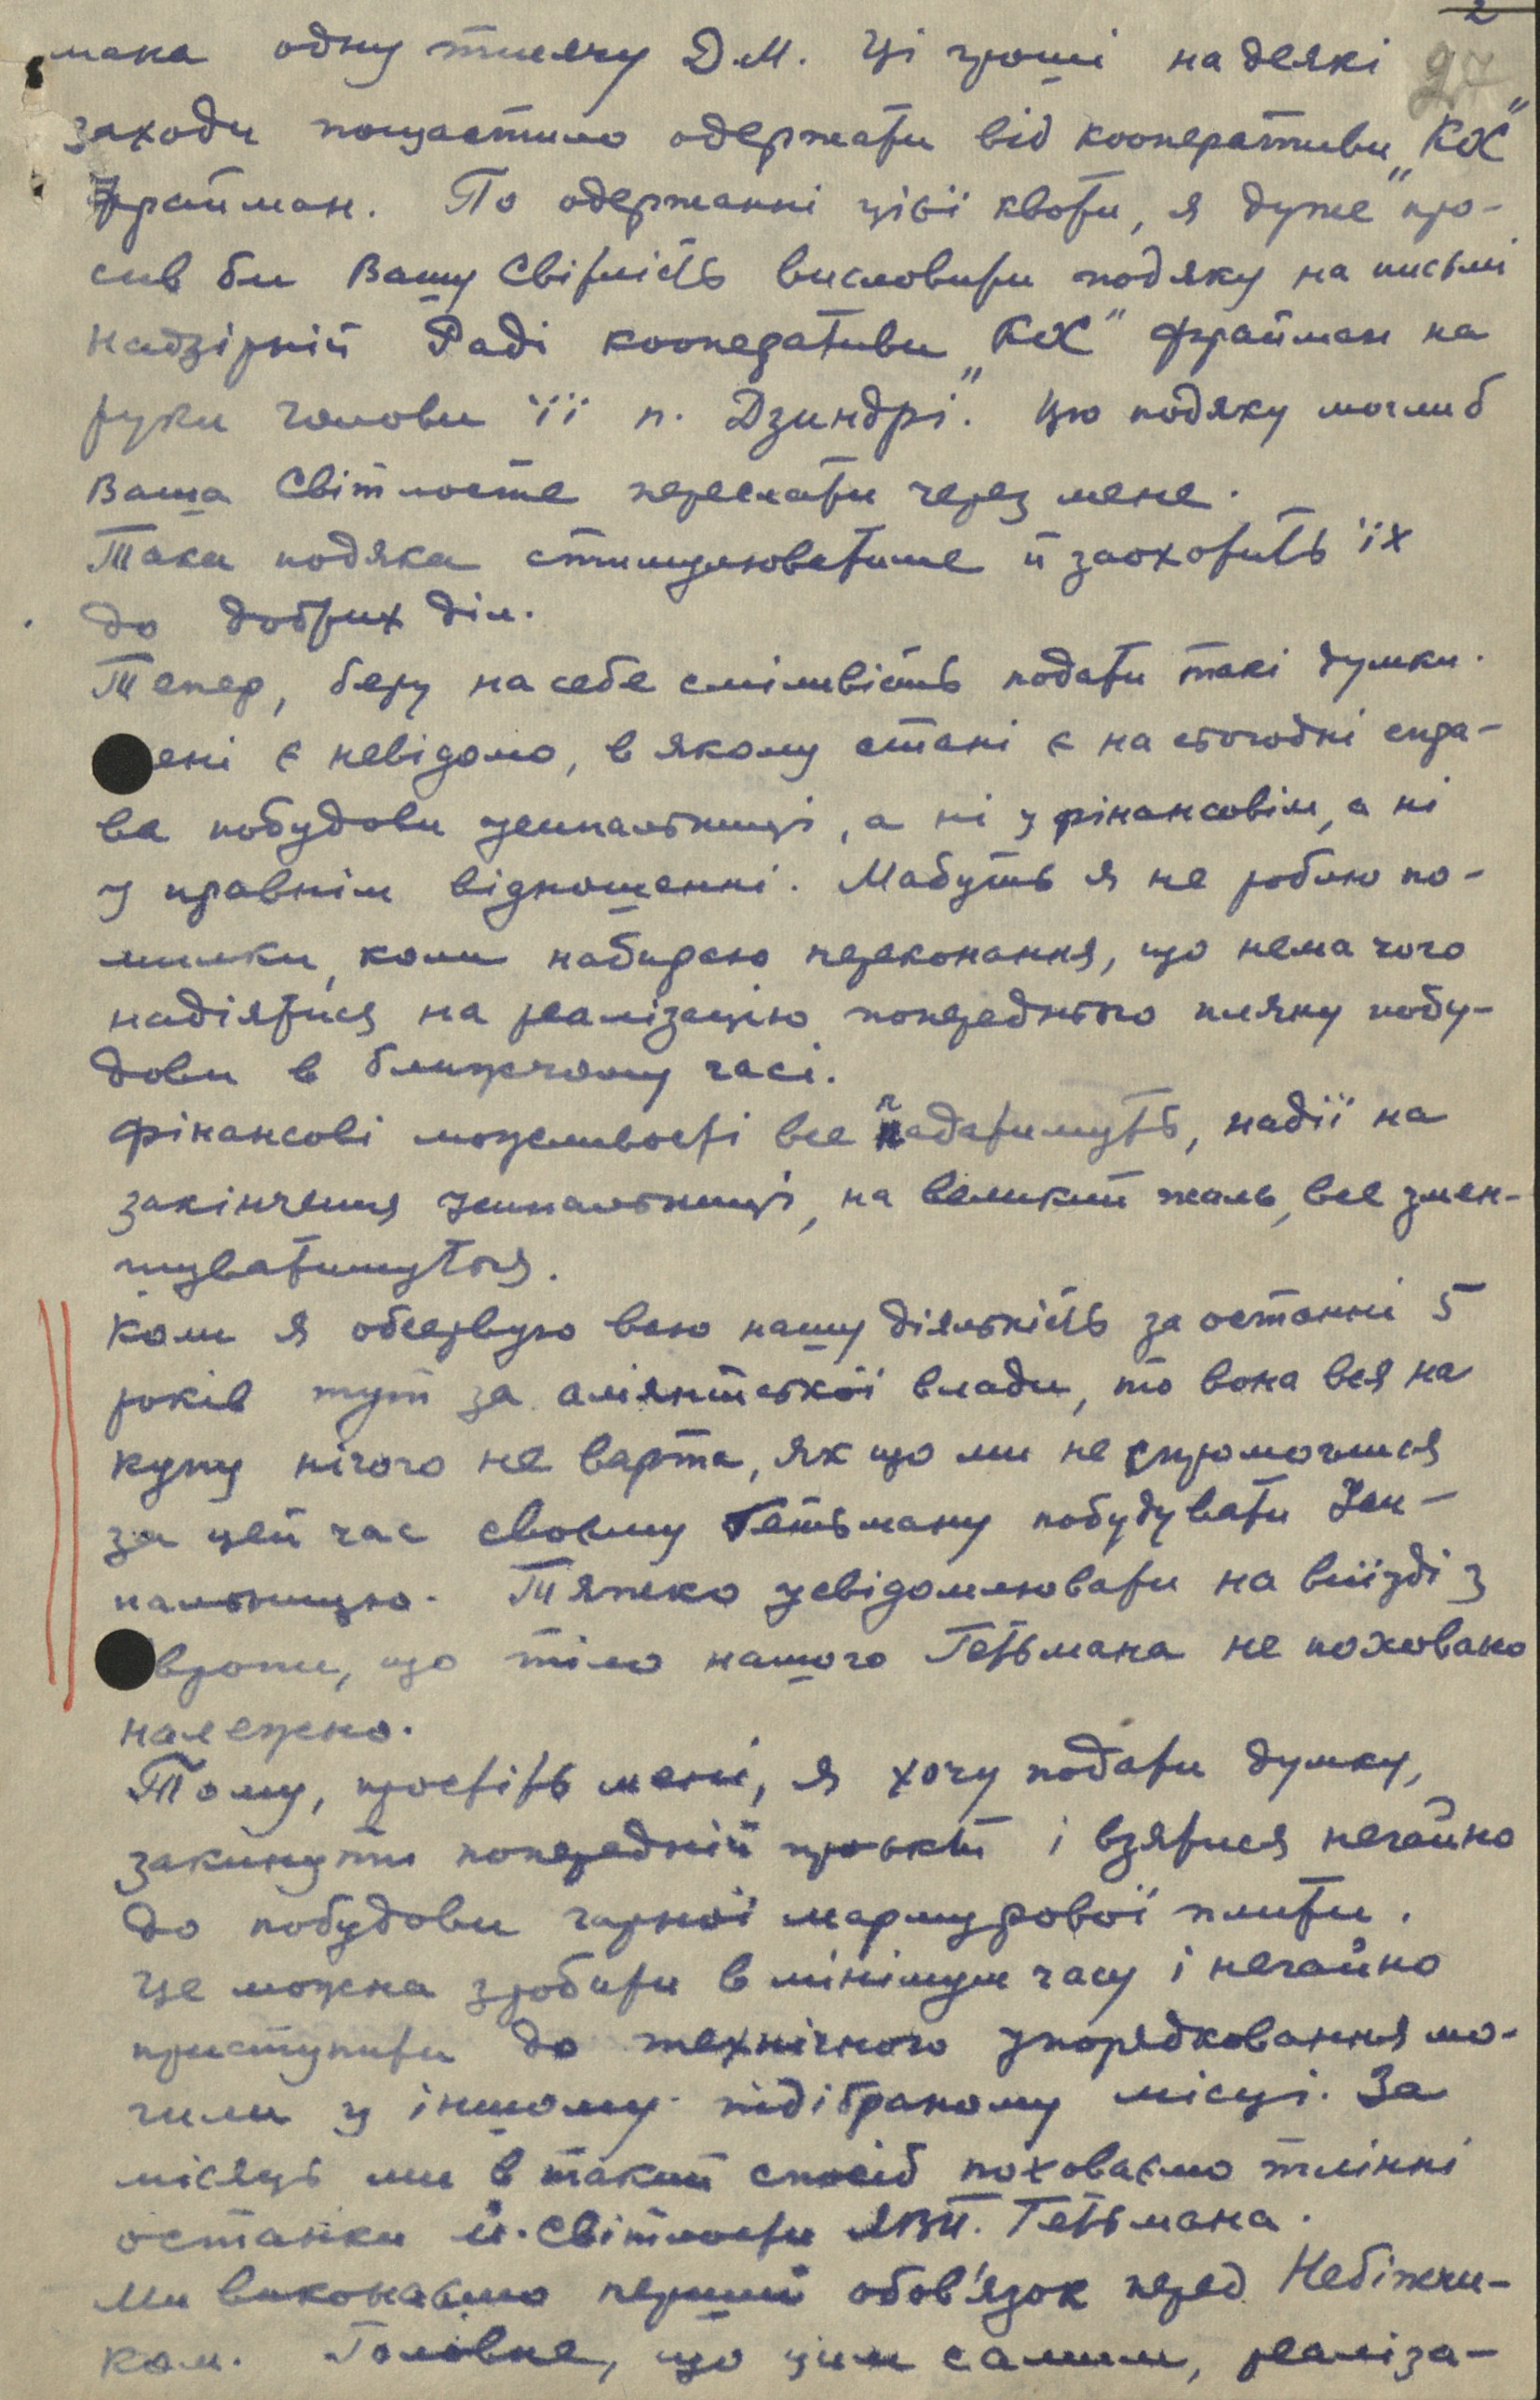 2
27
мана одну тисячу Д.М. Ці гроші на деякі
заходи пощастило одержати від кооперативи „КОХ"
Фрайман. По одержанні цієї квоти, я дуже про-
сив би Вашу Світлість висловити подяку на письмі
Надзірній Раді кооперативи „КОХ" Фрайман на
руки голови її п. Дзиндрі. Цю подяку моглиб
Ваша Світлосте переслати через мене.
Така подяка стимулюватиме й заохотить їх
до добрих діл.
Тепер, беру на себе сміливість подати такі думки.
ені є невідомо, в якому стані є на сьогодні спра-
ва побудови усипальниці, а ні у фінансовім, а ні
у правнім відношенні. Мабуть я не роблю по-
милки, коли набираю переконання, що нема чого
надіятися на реалізацію попереднього пляну побу-
дови в ближчому часі.
Фінансові можливості все падатимуть, надії на
закінчення Усипальниці, на великий жаль, все змен-
шуватимуться.
Коли я обсервую всю нашу діяльність за останні 5
років тут за аліянтської влади, то вона вся на
купу нічого не варта, як що ми не спромоглися
за цей час своєму Гетьману побудувати Уси-
пальницю. Тяжко усвідомлювати на виїзді з
вропи, що тіло нашого Гетьмана не поховано
належно.
Тому, простіть мені, я хочу подати думку,
закинути попередній проєкт і взятися негайно
до побудови гарної мармурової плити.
Це можна зробити в мінімум часу і негайно
приступити до технічного упорядковання мо-
гили у іншому підібраному місці. За
місяць ми в такий спосіб поховаємо тлінні
останки Й. Світлости ЯВП. Гетьмана.
Ми виконаємо перший обов'язок перед Небіжчи-
ком. Головне, що цим самим, реаліза-